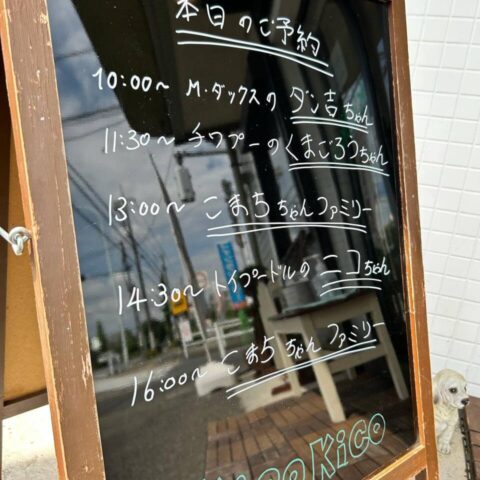 本日のご予約
10:00〜 M.ダックスの ダン吉ちゃん
11:30〜 チワプーの くまごろうちゃん
13:00〜 こまちちゃんファミリー
14:30〜 トイプードルの ニコちゃん
16:00〜 こまちちゃんファミリー
Kico